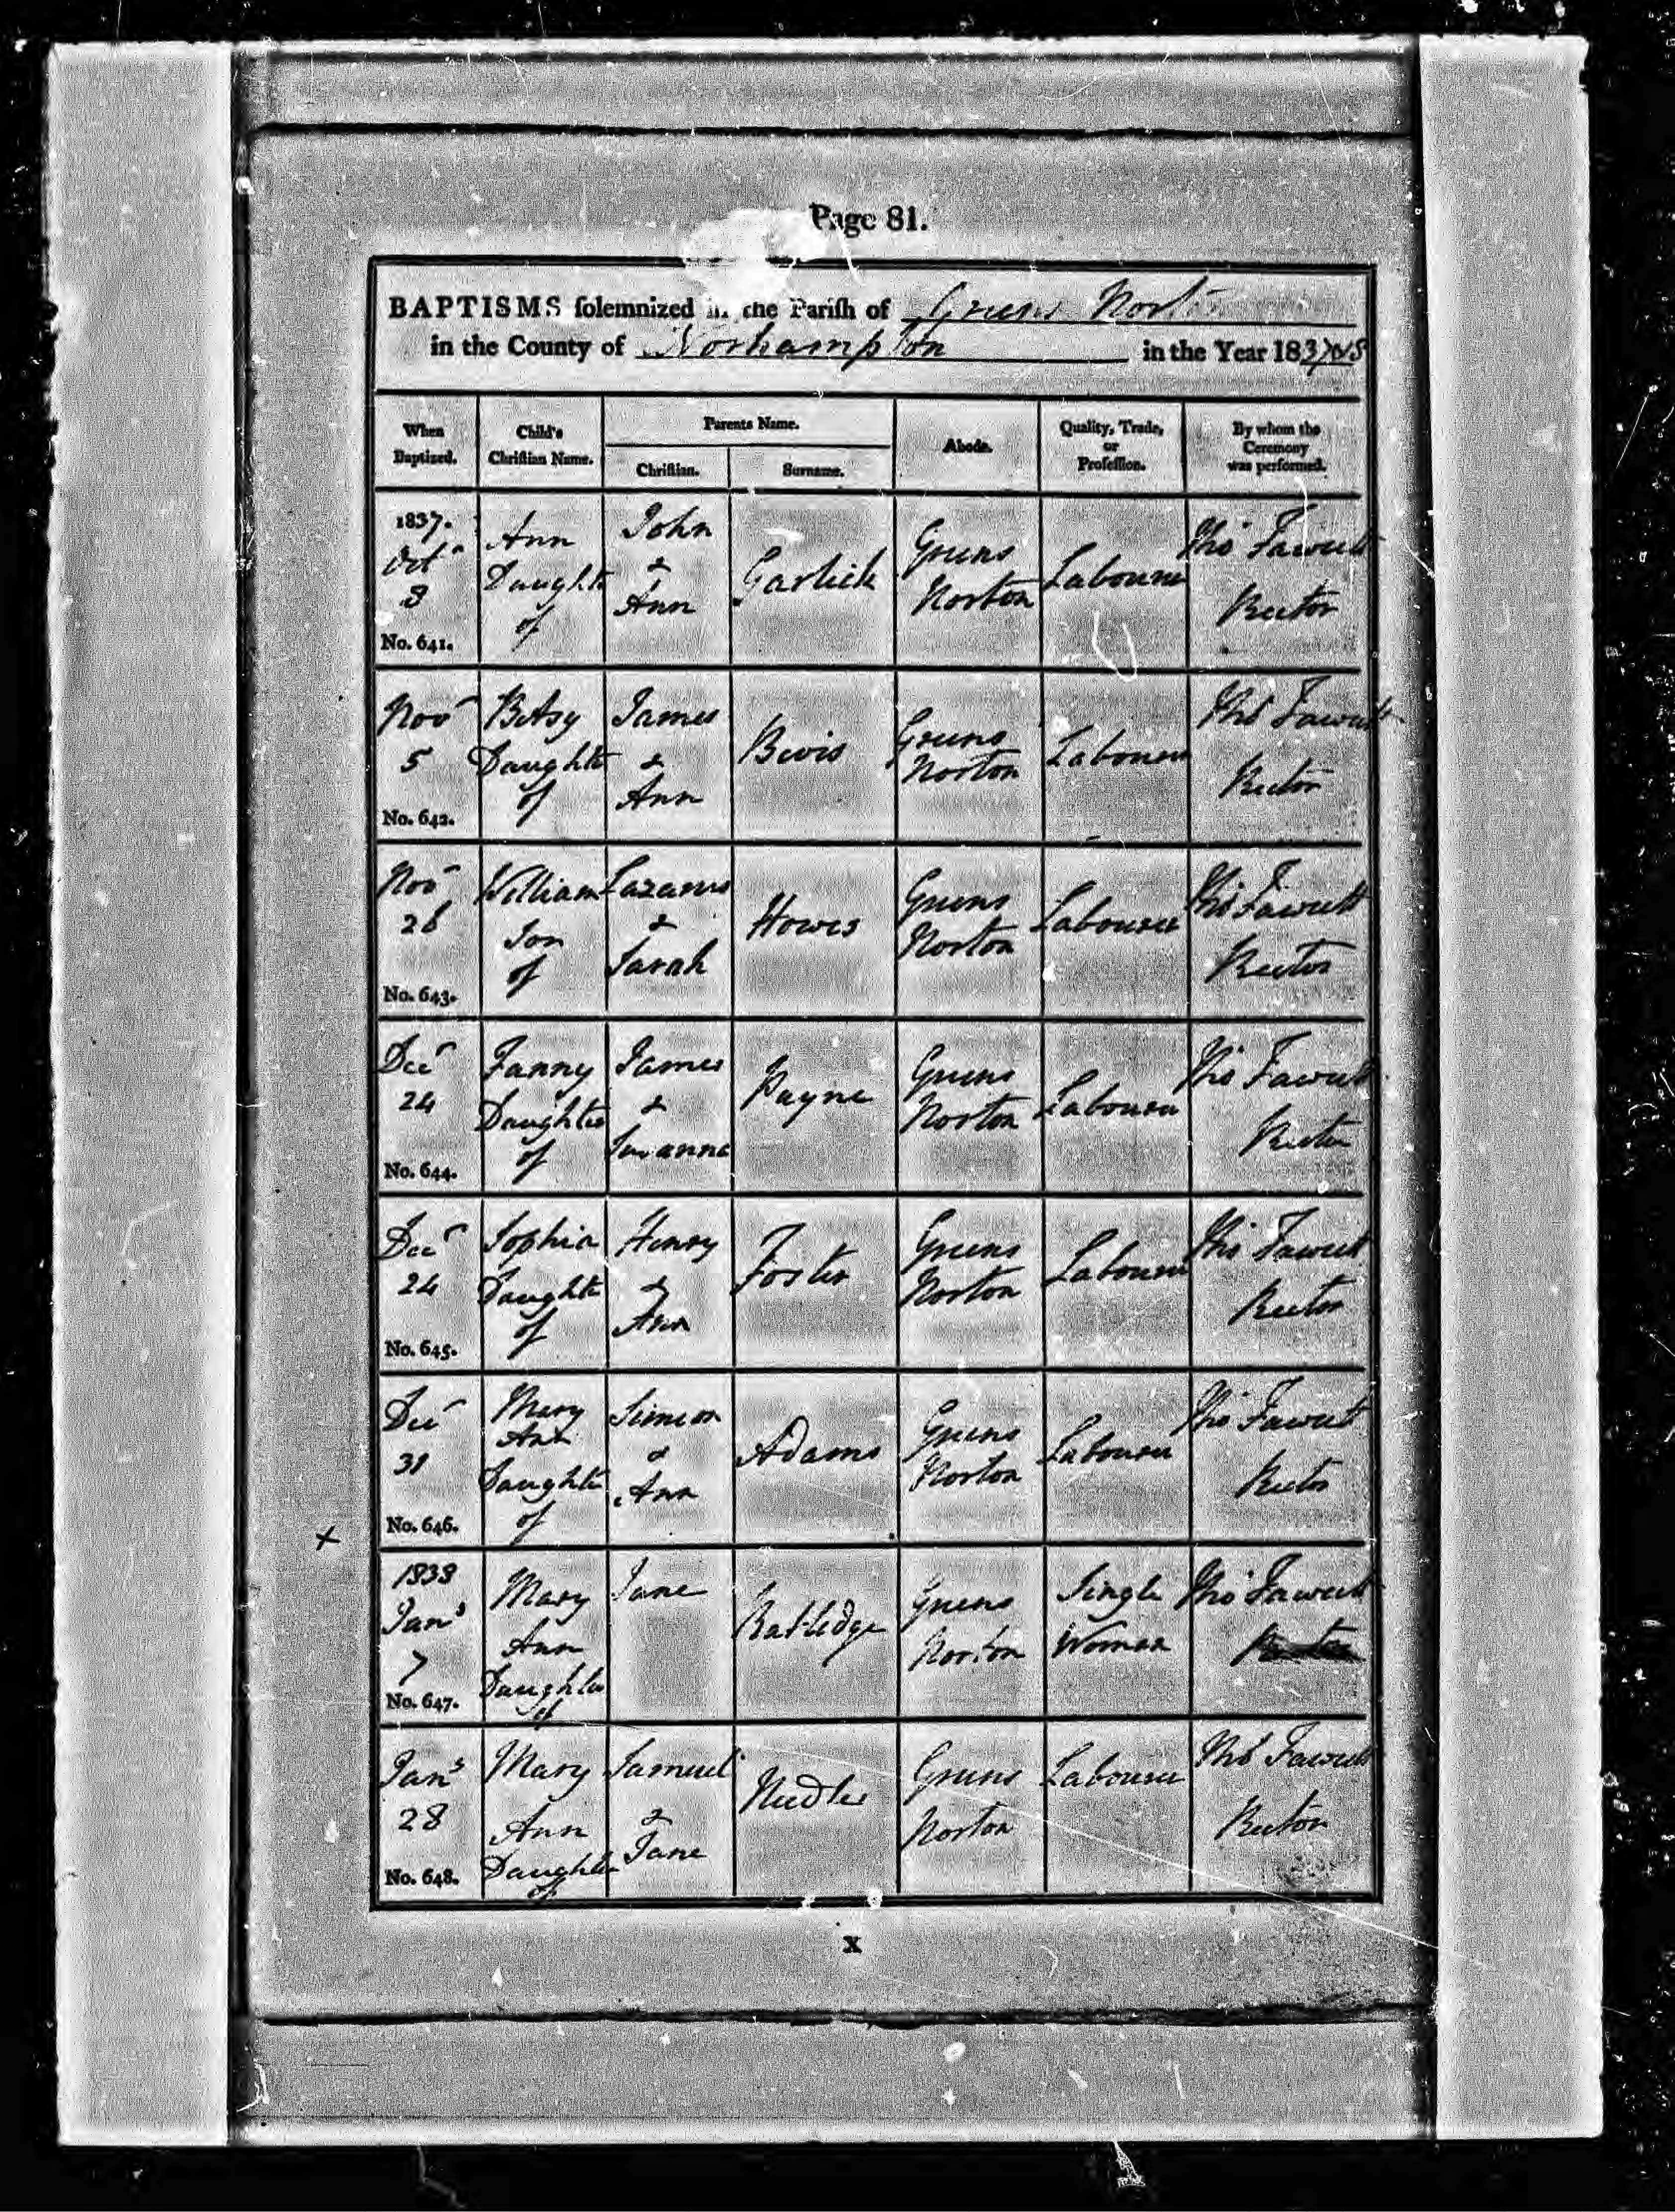 Page 81.
BAPTISMS solemnized in the Parish of Greens Norton
in the County of Norhampton in the Year 1837
When Baptized.
Child's Christian Name.
Parents Name.
Christian.
Surname.
Abode.
Quality, Trade, or Profession.
By whom the Ceremony was performed.
1837.
Octr
8
No. 641.
Ann
Daughtr
of
John
&
Ann
Garlick
Greens
Norton
Labourer
Thos Fawcett
Rector
Novr
5
No. 642.
Betsy
Daughtr
of
James
&
Ann
Bevis
Greens
Norton
Labourer
Thos Fawcett
Rector
Novr
26
No. 643.
William
Son
of
Lazarus
&
Sarah
Howes
Greens
Norton
Labourer
Thos Fawcett
Rector
Decr
24
No. 644.
Fanny
Daughter
of
James
&
Susanna
Payne
Greens
Norton
Labourer
Thos Fawcett
Rector
Decr
24
No. 645.
Sophia
Daughtr
of
Henry
&
Ann
Foster
Greens
Norton
Labourer
Thos Fawcett
Rector
Decr
31
No. 646.
Mary
Ann
Daughtr
of
Simeon
&
Ann
Adams
Greens
Norton
Labourer
Thos Fawcett
Rector
x
1838
Jany
7
No. 647.
Mary
Ann
Daughter
of
Jane
Ratledge
Greens
Norton
Single
Woman
Thos Fawcett
Rector
Jany
28
No. 648.
Mary
Ann
Daughter
of
Samuel
&
Jane
Needle
Greens
Norton
Labourer
Thos Fawcett
Rector
X